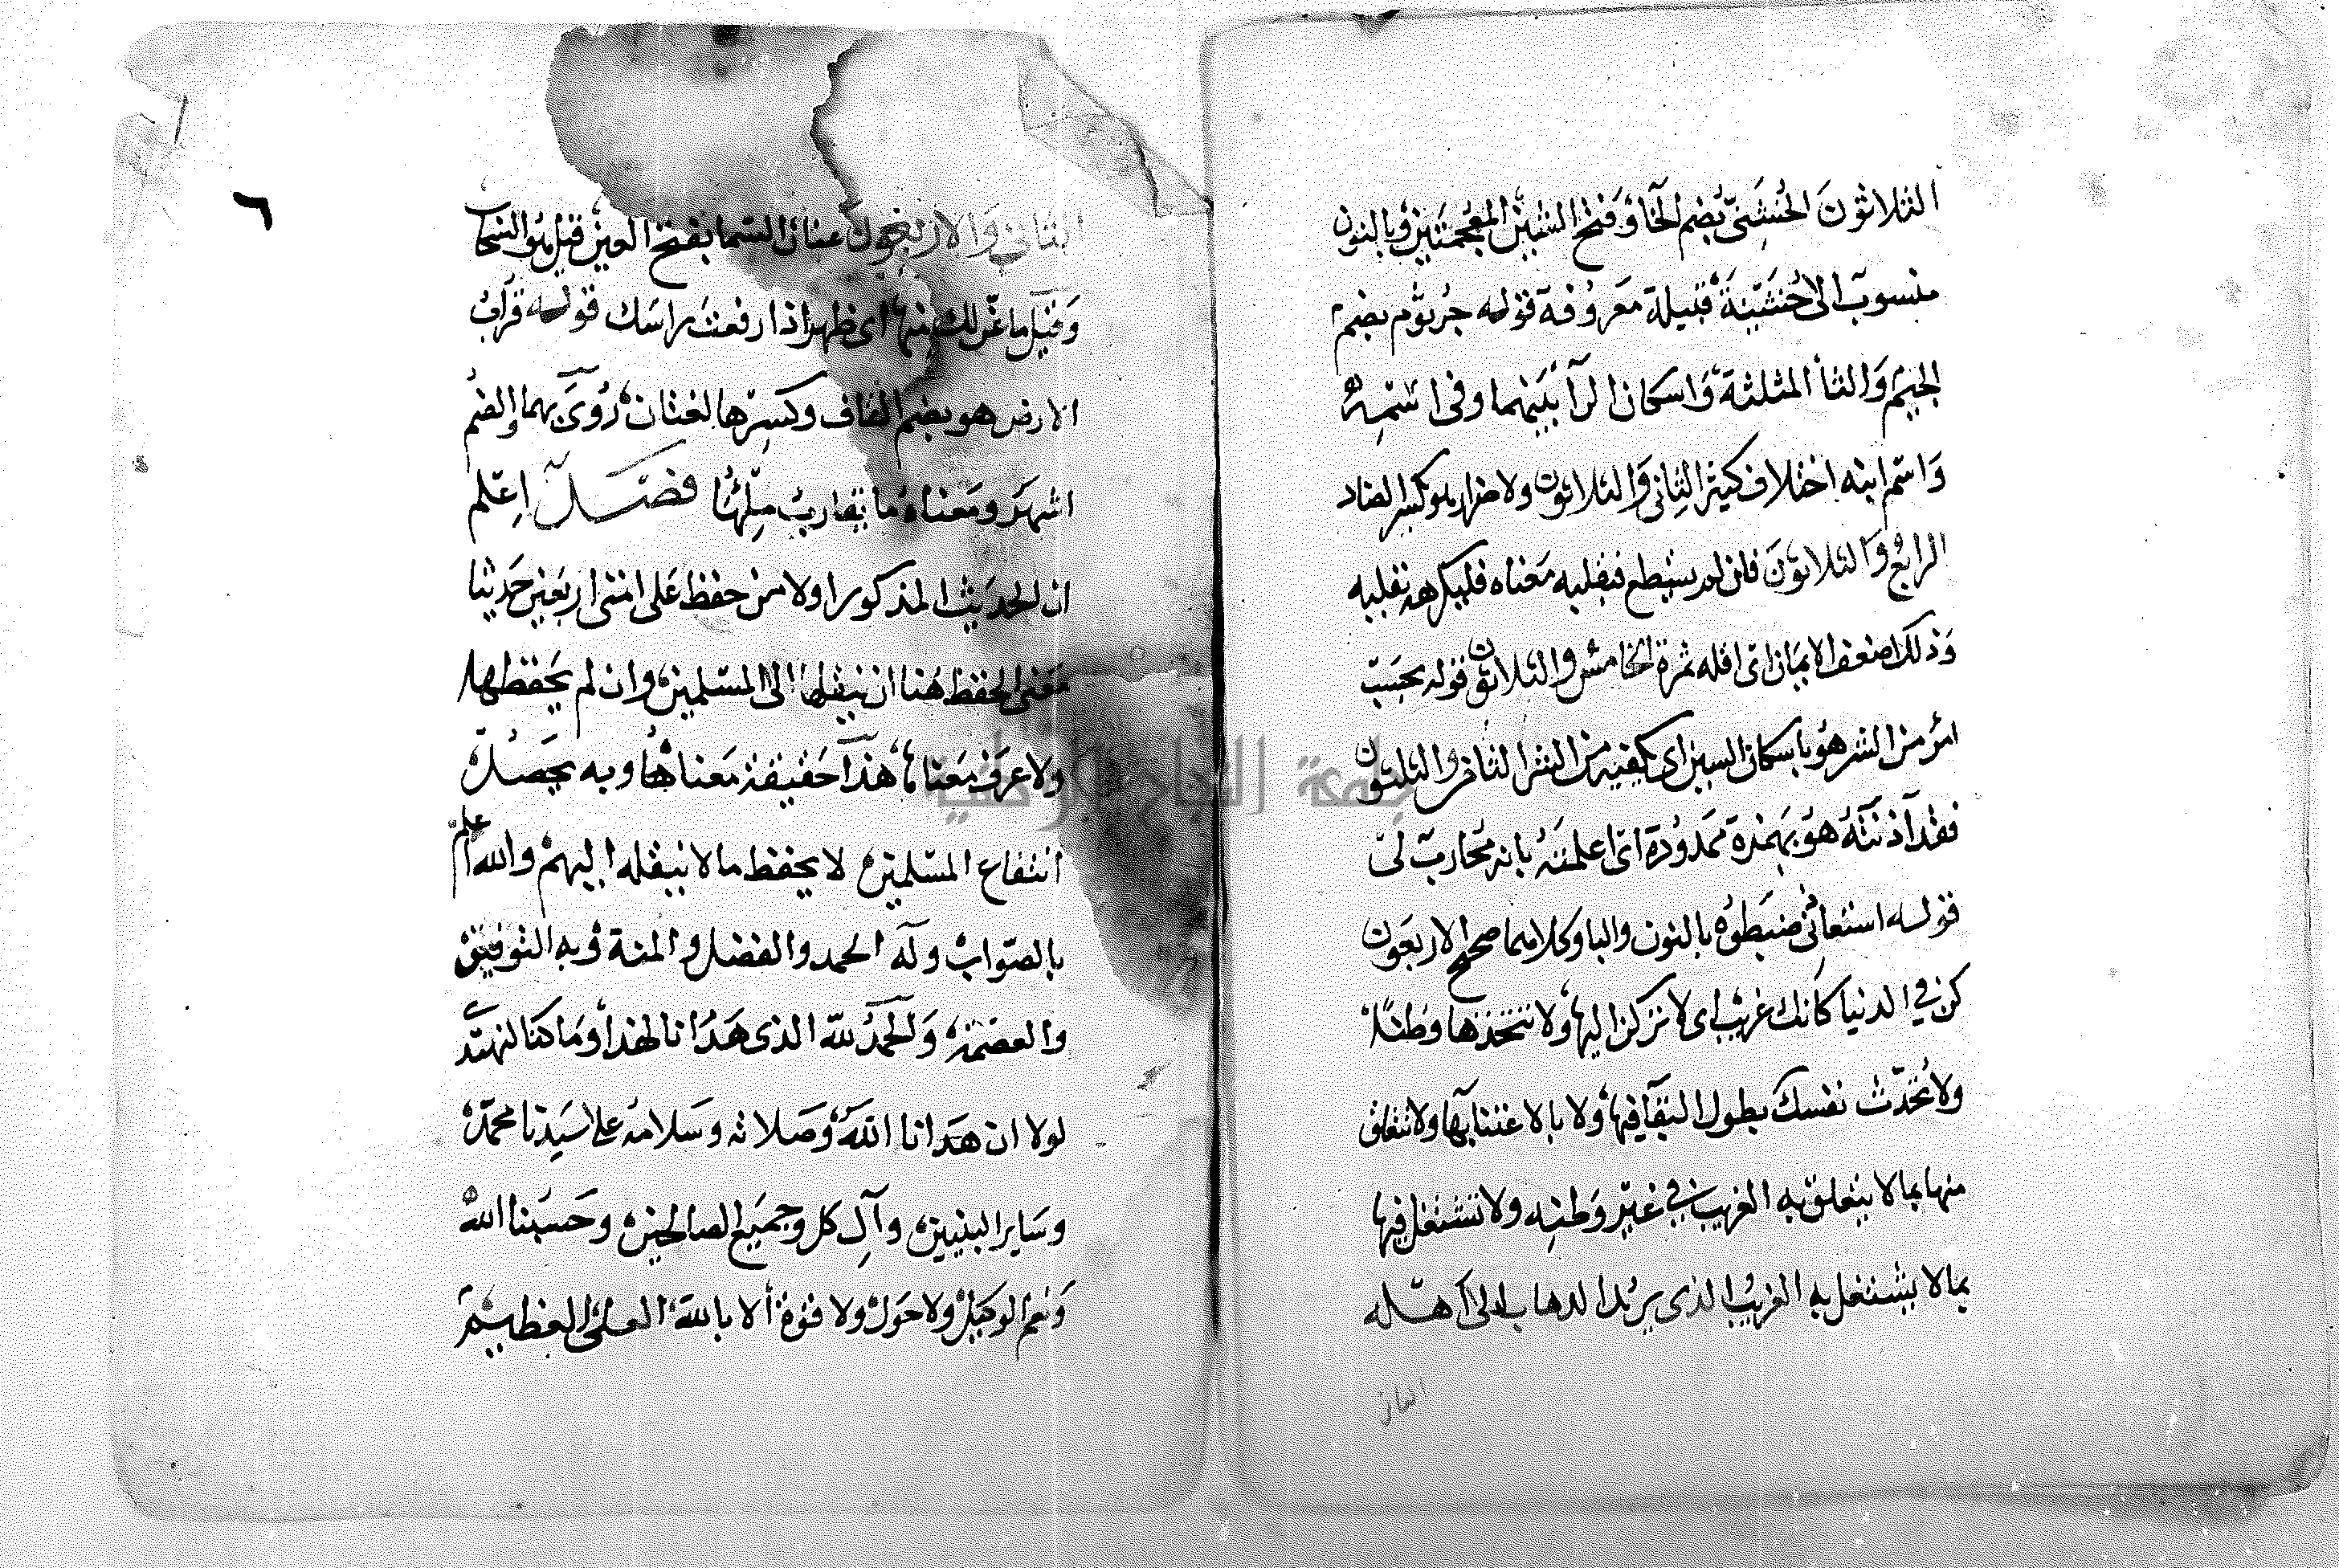 الثلاثون الخُشَنيّ بضم الخا وفتح الشين المعجمتين وبالنون
منسوب الى خشينة قبيلة معروفة قوله جرثوم بضم
الجيم والثا المثلثة واسكان الرا بينهما وفى اسمه
واسم ابيه اختلاف كثير الثانى والثلاثون ولا ضرار هو بكسر الضاد
الرابع والثلاثون فان لم يستطع فبقلبه معناه فليكرهه بقلبه
وذلك اضعف الايمان اى اقله ثمرة الخامس والثلاثون قوله بحسب
امرٔ من الشر هو باسكان السين اى يكفيه من الشر الثامن والثلثون
فقد آذنته هو بهمزة ممدودة اى اعلمته بانه محارب لى
قوله استعاذنى ضبطوه بالنون والبا وكلاهما صحيح الاربعون
كن في الدنيا كانك غريب اى لا تركن اليها ولا تتخذها وطنًا
ولا تُحدّث نفسك بطول البقا فيها ولا بالاعتنا بها ولا تتعلق
منها بما لا يتعلق به الغريب في غير وطنه ولا تشتغل فيها
بما لا يشتغل به الغريب الذى يريد الذهاب الى اهله
الثانى والاربعون عنان السما بفتح العين قيل هو السحاب
وقيل ما عَنّ لك منها اى ظهر اذا رفعت راسك قوله قراب
الارض هو بضم القاف وكسرها لغتان روى بهما والضم
اشهر ومعناه ما يقارب ملئها فصل اعلم
ان الحديث المذكور اولا من حفظ على امتى اربعين حديثا
معنى الحفظ هنا ان ينقلها الى المسلمين وان لم يحفظها
ولا عرف معناها هذا حقيقة معناها وبه يحصل
انتفاع المسلمين لا بحفظ ما لا ينقله اليهم والله اعلم
بالصواب وله الحمد والفضل والمنة وبه التوفيق
والعصمة والحمد لله الذى هدانا لهذا وما كنا لنهتدى
لولا ان هدانا الله وصلاته وسلامه على سيدنا محمد
وساير النبيين وآل كل وجميع الصالحين وحسبنا الله
ونعم الوكيل ولا حول ولا قوة الا بالله العلى العظيم
٦
جامعة النجاح الوطنية